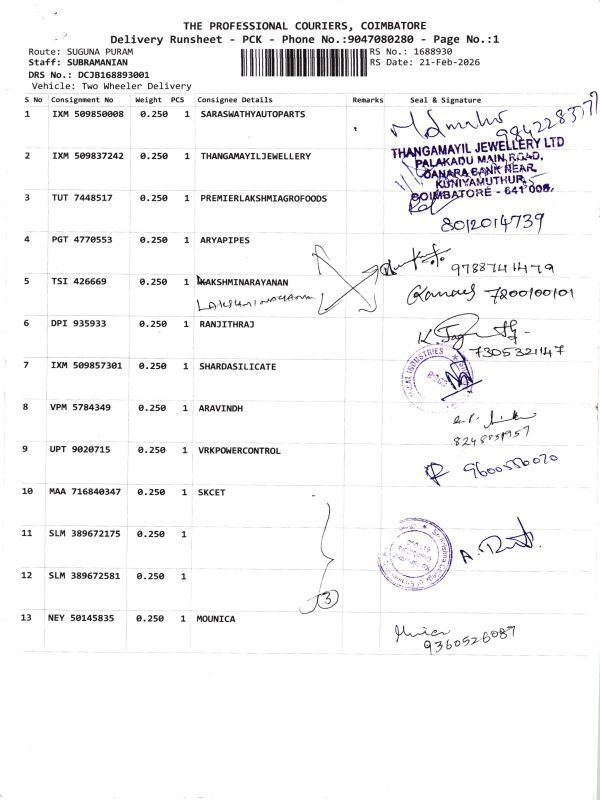 THE PROFESSIONAL COURIERS, COIMBATORE
Delivery Runsheet - PCK - Phone No.:9047080280 - Page No.:1
Route: SUGUNA PURAM RS No.: 1688930
Staff: SUBRAMANIAN RS Date: 21-Feb-2026
DRS No.: DCJB168893001
Vehicle: Two Wheeler Delivery
S No Consignment No Weight PCS Consignee Details Remarks Seal & Signature
1 IXM 509850008 0.250 1 SARASWATHYAUTOPARTS
2 IXM 509837242 0.250 1 THANGAMAYILJEWELLERY
THANGAMAYIL JEWELLERY LTD
PALAKADU MAIN ROAD,
CANARA BANK NEAR,
KUNIYAMUTHUR,
COIMBATORE - 641 008.
3 TUT 7448517 0.250 1 PREMIERLAKSHMIAGROFOODS
8012014739
4 PGT 4770553 0.250 1 ARYAPIPES
9788741479
5 TSI 426669 0.250 1 LAKSHMINARAYANAN
7200100101
6 DPI 935933 0.250 1 RANJITHRAJ
7305321147
7 IXM 509857301 0.250 1 SHARDASILICATE
INDUSTRIES
8 VPM 5784349 0.250 1 ARAVINDH
9 UPT 9020715 0.250 1 VRKPOWERCONTROL
9600550020
10 MAA 716840347 0.250 1 SKCET
11 SLM 389672175 0.250 1
12 SLM 389672581 0.250 1
3
13 NEY 50145835 0.250 1 MOUNICA
9360526087